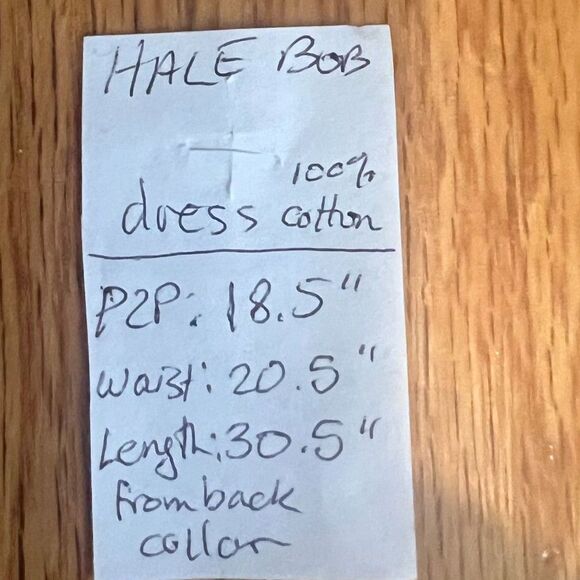 HALE BOB
100%
dress cotton
P2P: 18.5"
Waist: 20.5"
Length: 30.5"
from back
collar